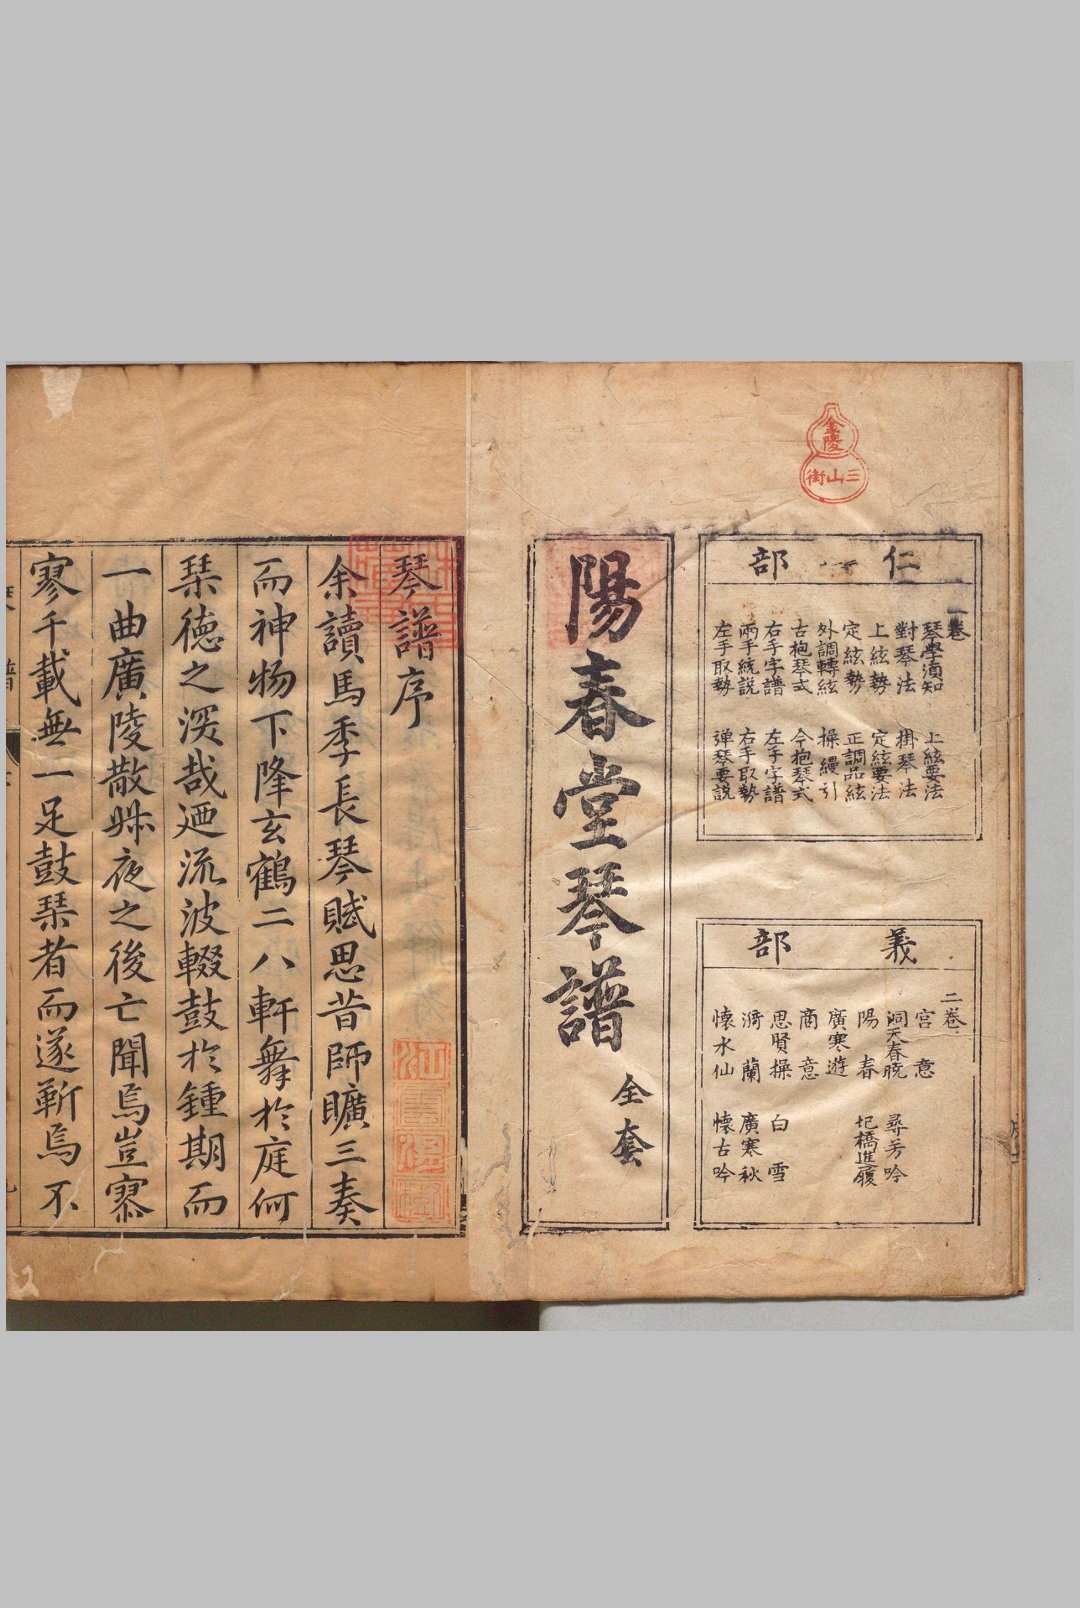 金陵
三山街
仁部
一卷
琴學須知 上絃要法
對琴法 掛琴法
上絃勢 定絃要法
定絃勢 正調品絃
外調轉絃 操縵引
古抱琴式 今抱琴式
右手字譜 左手字譜
兩手統説 右手取勢
左手取勢 彈琴要説
義部
二卷
宮意
洞天春曉 尋芳吟
陽春 圯橋進履
廣寒遊
商意
思賢操 白雪
漪蘭 廣寒秋
懷水仙 懷古吟
陽春堂琴譜 全套
琴譜序
余讀馬季長琴賦思昔師曠三奏
而神物下降玄鶴二八軒舞於庭何
琹德之深哉迺流波輟鼓於鍾期而
一曲廣陵散𡖖夜之後亡聞焉豈寥
寥千載無一足鼓琹者而遂靳焉不